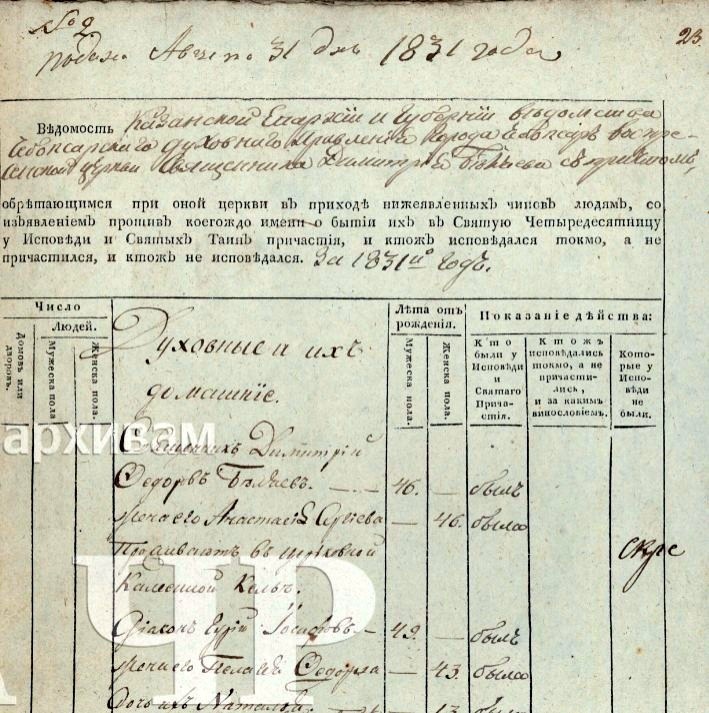 № 2
23.
Августа 31 дня 1831 года
Вѣдомость Казанской Епархіи и Губерніи вѣдомства
Чебоксарскаго духовнаго Правленія города Чебоксаръ Воскре-
сенской церкви Священника Димитрія Бѣляева съ причтомъ,
обрѣтающимся при оной церкви въ приходѣ нижеявленныхъ чиновъ людямъ, со
изъявленіемъ противъ коегождо имени о бытіи ихъ въ Святую Четыредесятницу
у Исповѣди и Святыхъ Таинъ причастія, и ктожъ исповѣдался токмо, а не
причастился, и ктожъ не исповѣдался. За 1831й годъ.
Число
Людей.
Домовъ или дворовъ.
Мужеска пола.
Женска пола.
Духовные и ихъ
домашніе.
Лѣта отъ рожденія.
Мужеска пола.
Женска пола.
Показаніе дѣйства:
Кто были у Исповѣди и Святаго Причастія.
Ктожъ исповѣдались токмо, а не причастились, и за какимъ винословіемъ.
Которые у Исповѣди не были.
архивам
Священникъ Димитрій
Ѳедоровъ Бѣляевъ. — 46. — былъ
жена его Анастасія Сергіева — 46. была
Проживаютъ въ церковной
Каменной Кельѣ.
Діаконъ Іосифовъ — 49. — былъ
жена его Пелагія Ѳедорова — 43. была
Дочь ихъ Наталья. 13.
ЧР